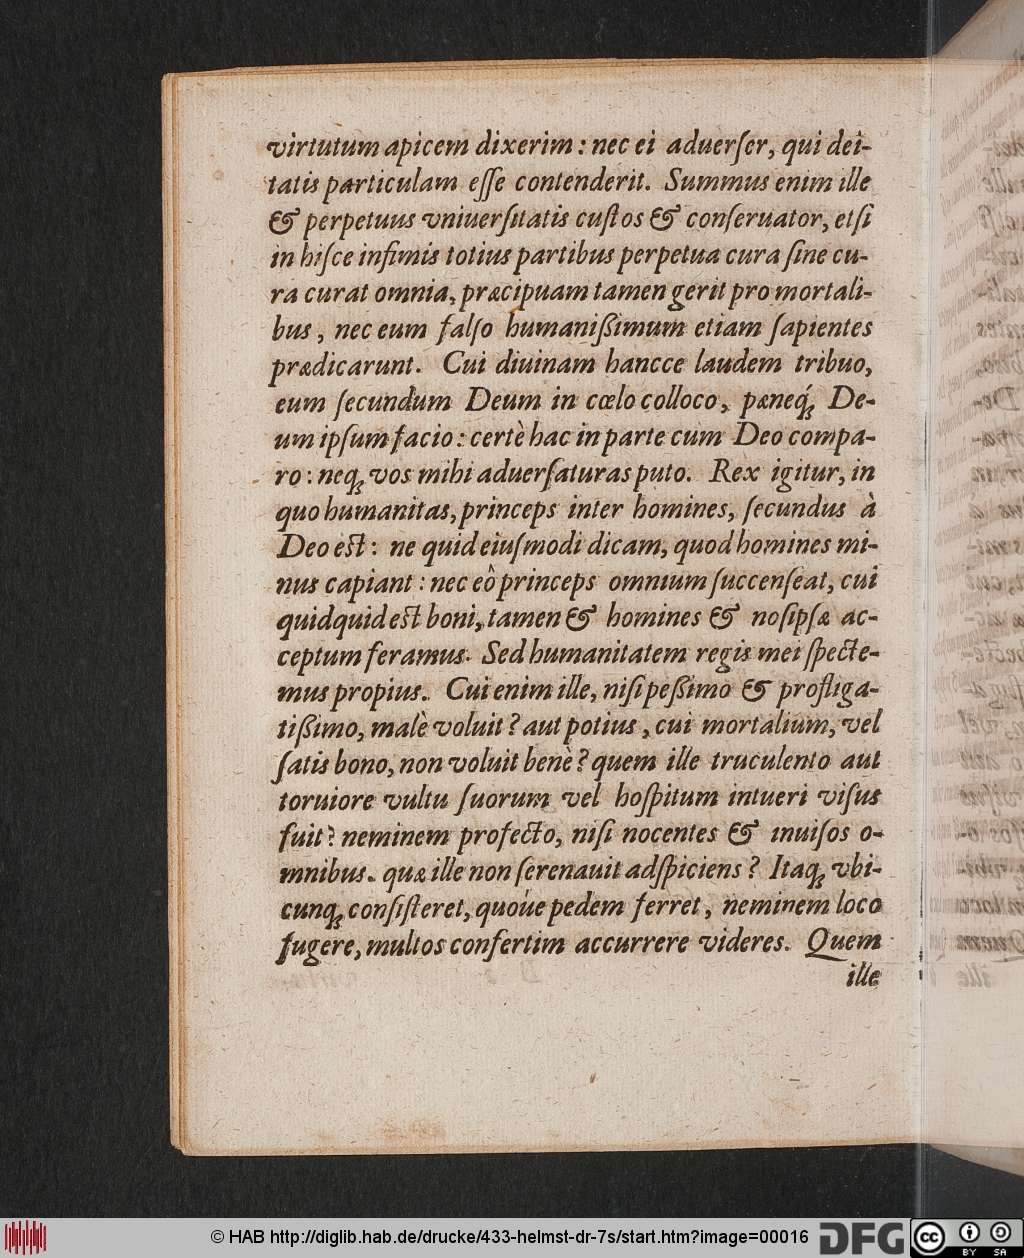 virtutum apicem dixerim : nec ei aduerſer, qui dei-
tatis particulam eſſe contenderit. Summus enim ille
& perpetuus vniuerſitatis cuſtos & conſeruator, etſi
in hiſce infimis totius partibus perpetua cura ſine cu-
ra curat omnia, præcipuam tamen gerit pro mortali-
bus, nec eum falſo humanißimum etiam ſapientes
prædicarunt. Cui diuinam hancce laudem tribuo,
eum ſecundum Deum in cœlo colloco, pæneq́ꝫ De-
um ipſum facio : certè hac in parte cum Deo compa-
ro : neqꝫ vos mihi aduerſaturas puto. Rex igitur, in
quo humanitas, princeps inter homines, ſecundus à
Deo est : ne quid eiuſmodi dicam, quod homines mi-
nus capiant : nec eô princeps omnium ſuccenſeat, cui
quidquid est boni, tamen & homines & noſipſæ ac-
ceptum feramus. Sed humanitatem regis mei ſpecte-
mus propius. Cui enim ille, niſi peßimo & profliga-
tißimo, malè voluit? aut potius, cui mortalium, vel
ſatis bono, non voluit benè? quem ille truculento aut
toruiore vultu ſuorum vel hoſpitum intueri viſus
fuit? neminem profecto, niſi nocentes & inuiſos o-
mnibus. quæ ille non ſerenauit adſpiciens? Itaqꝫ vbi-
cunqꝫ conſiſteret, quoúe pedem ferret, neminem loco
fugere, multos confertim accurrere videres. Quem
ille
© HAB http://diglib.hab.de/drucke/433-helmst-dr-7s/start.htm?image=00016
DFG
cc BY SA